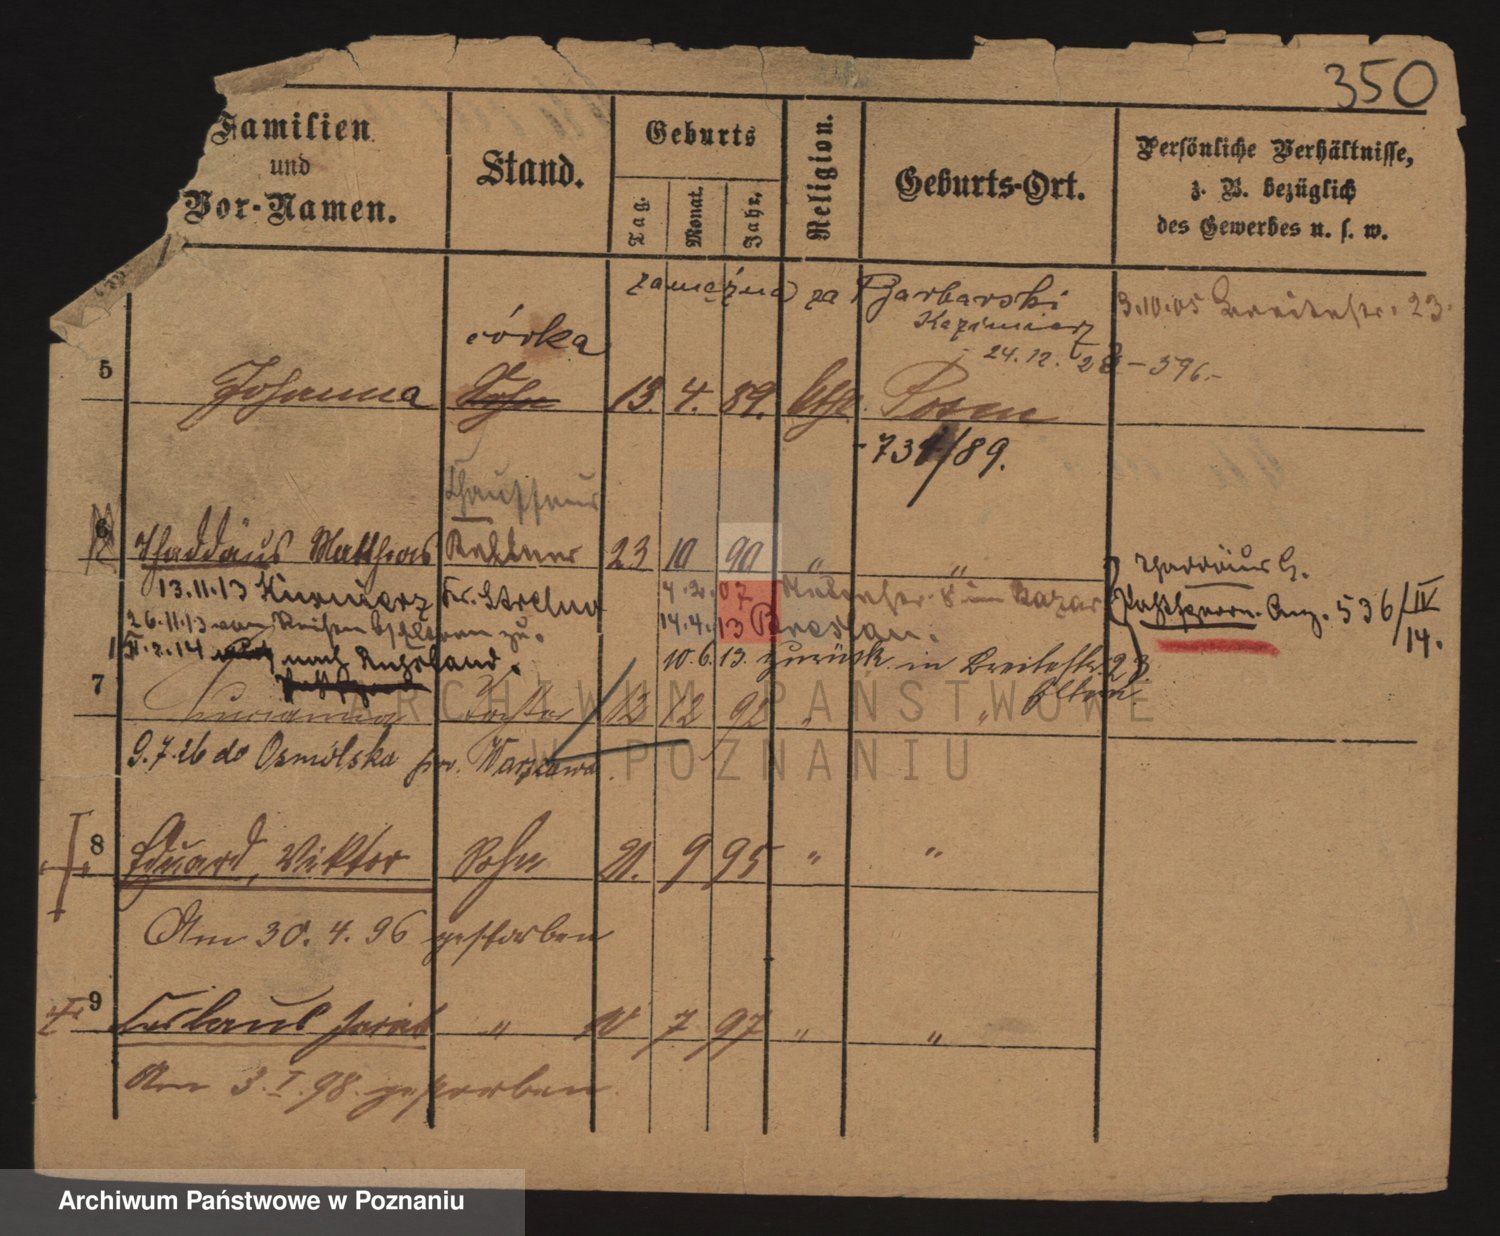 350
Familien
und
Vor-Namen.
Stand.
Geburts
Tag.
Monat.
Jahr.
Religion.
Geburts-Ort.
Persönliche Verhältnisse,
z. B. bezüglich
des Gewerbes u. s. w.
zamężna za Barbarski
Kazimierz
24.12. 28 - 396.-
3.10.05 Breitestr. 23.
córka
5 Johanna Sohn 13. 4. 89. kth. Posen
- 734/89.
6 Thaddäus Matthias Kellner 23 10 90 " "
Thaddäus
13.11.13 Kr. Strelno
4.2.07
14.4.13 Breslau.
536/IV
14.
26.11.13 von Reisen zu.
II.2.14 nach Russland.
10.6.13. zurück in Breitestr. 23.
Eltern
7 Marianna Tochter 13 12 92 " "
9.7.26 do Osmólska Warszawa
8 Eduard, Viktor Sohn 21. 9 95 " "
Am 30. 4. 96 gestorben
9 " 7 97 " "
Am 3.I.98. gestorben.
ARCHIWUM PAŃSTWOWE
W POZNANIU
Archiwum Państwowe w Poznaniu